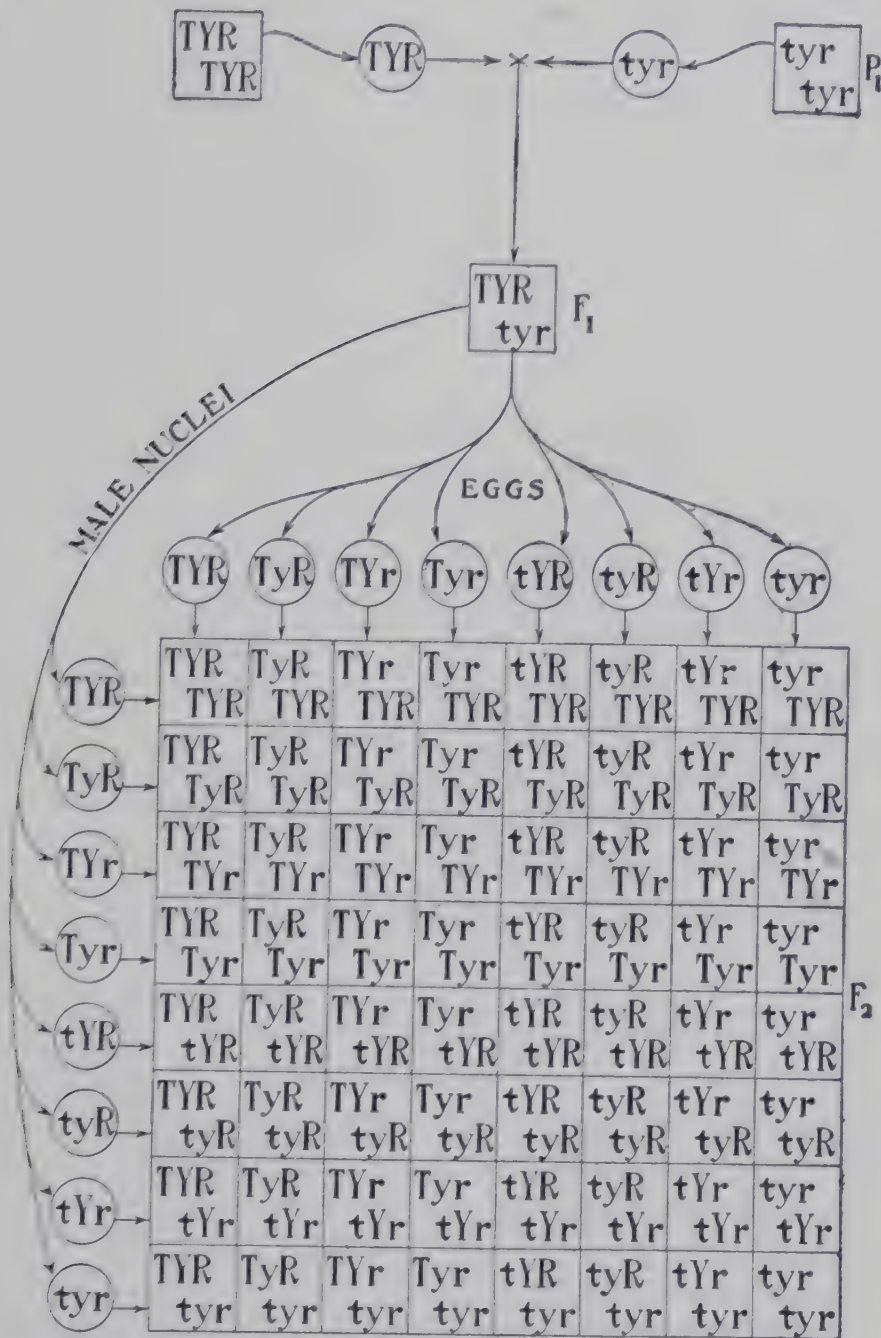 TYR TYR tyr tyr P₁
TYR tyr
TYR F₁
tyr
MALE NUCLEI
EGGS
TYR TyR TYr Tyr tYR tyR tYr tyr
TYR TyR TYr Tyr tYR tyR tYr tyr
TYR TYR TYR TYR TYR TYR TYR TYR TYR
TYR TyR TYr Tyr tYR tyR tYr tyr
TyR TyR TyR TyR TyR TyR TyR TyR TyR
TYR TyR TYr Tyr tYR tyR tYr tyr
TYr TYr TYr TYr TYr TYr TYr TYr TYr
TYR TyR TYr Tyr tYR tyR tYr tyr
Tyr Tyr Tyr Tyr Tyr Tyr Tyr Tyr Tyr
F₂
TYR TyR TYr Tyr tYR tyR tYr tyr
tYR tYR tYR tYR tYR tYR tYR tYR tYR
TYR TyR TYr Tyr tYR tyR tYr tyr
tyR tyR tyR tyR tyR tyR tyR tyR tyR
TYR TyR TYr Tyr tYR tyR tYr tyr
tYr tYr tYr tYr tYr tYr tYr tYr tYr
TYR TyR TYr Tyr tYR tyR tYr tyr
tyr tyr tyr tyr tyr tyr tyr tyr tyr